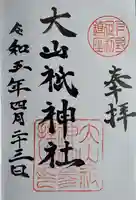 奉拝
大山祇神社
令和五年四月二十三日